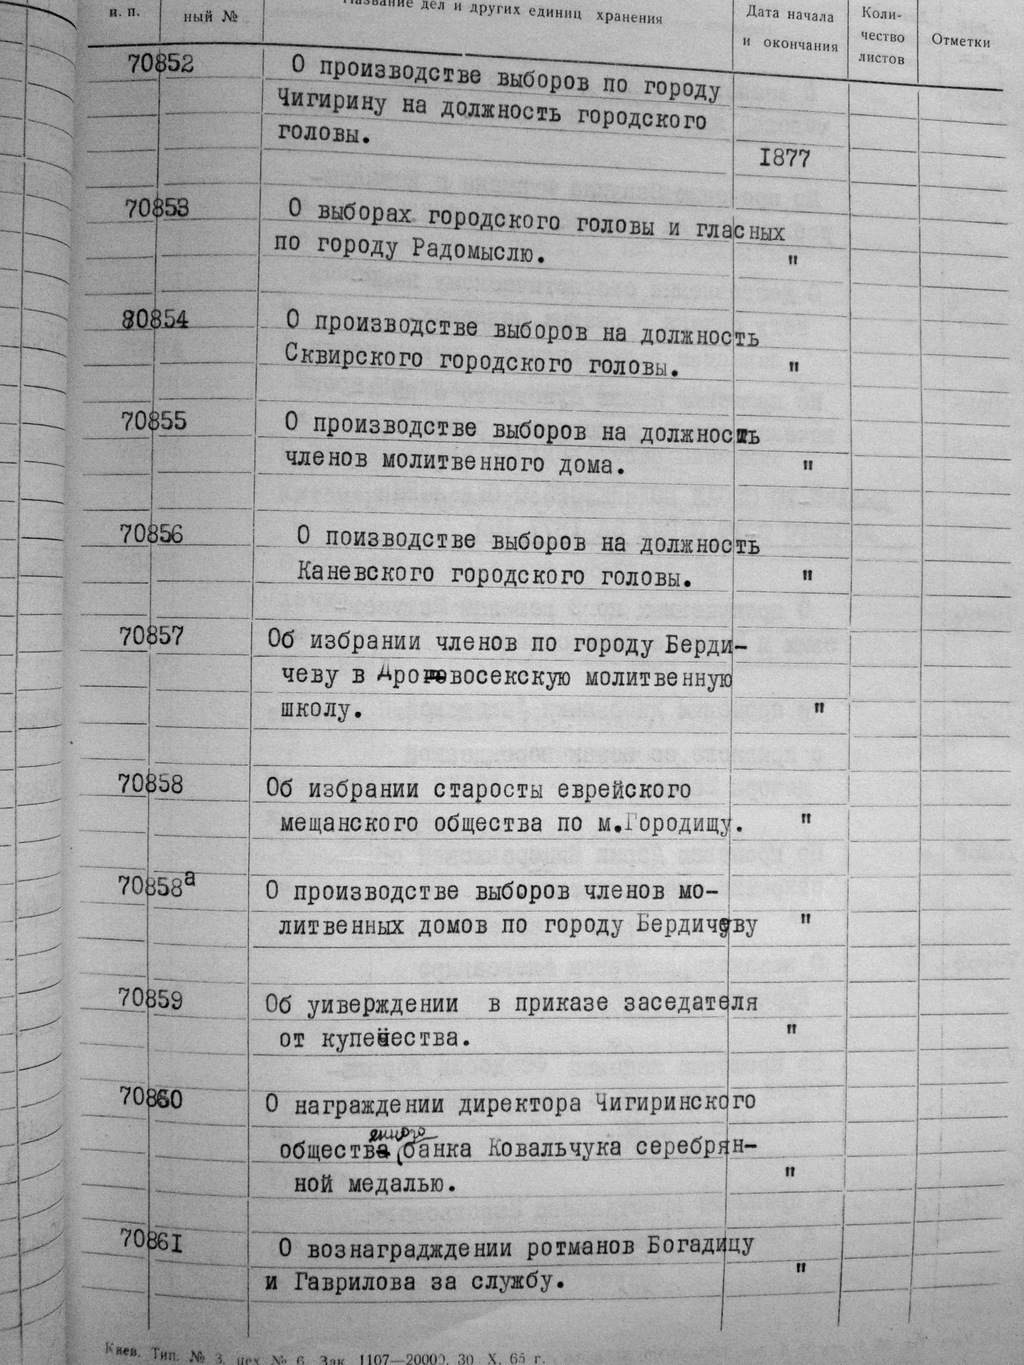 п. п.
ный №
Название дел и других единиц хранения
Дата начала
и окончания
Коли-
чество
листов
Отметки
70852 О производстве выборов по городу
Чигирину на должность городского
головы.
1877
70853 О выборах городского головы и гласных
по городу Радомыслю. "
80854 О производстве выборов на должность
Сквирского городского головы. "
70855 О производстве выборов на должность
членов молитвенного дома. "
70856 О поизводстве выборов на должность
Каневского городского головы. "
70857 Об избрании членов по городу Берди-
чеву в молитвенную
школу. "
70858 Об избрании старосты еврейского
мещанского общества по м.Городищу. "
70858а О производстве выборов членов мо-
литвенных домов по городу Бердичеву "
70859 Об уиверждении в приказе заседателя
от купечества. "
70860 О награждении директора Чигиринского
енного
обществ банка Ковальчука серебрян-
ной медалью. "
70861 О вознаградждении ротманов Богадицу
и Гаврилова за службу. "
Киев. Тип. № 3, цех № 6. Зак. 1107—20000. 30. X. 65 г.